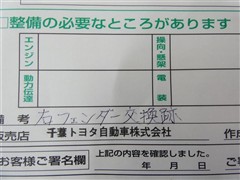 □整備の必要なところがあります
エンジン
操向・懸架
動力伝達
電装
備考 右フェンダー交換跡
販売店 千葉トヨタ自動車株式会社 作成
上記の内容を確認しました。
お客様ご署名欄 年 月 日 ご